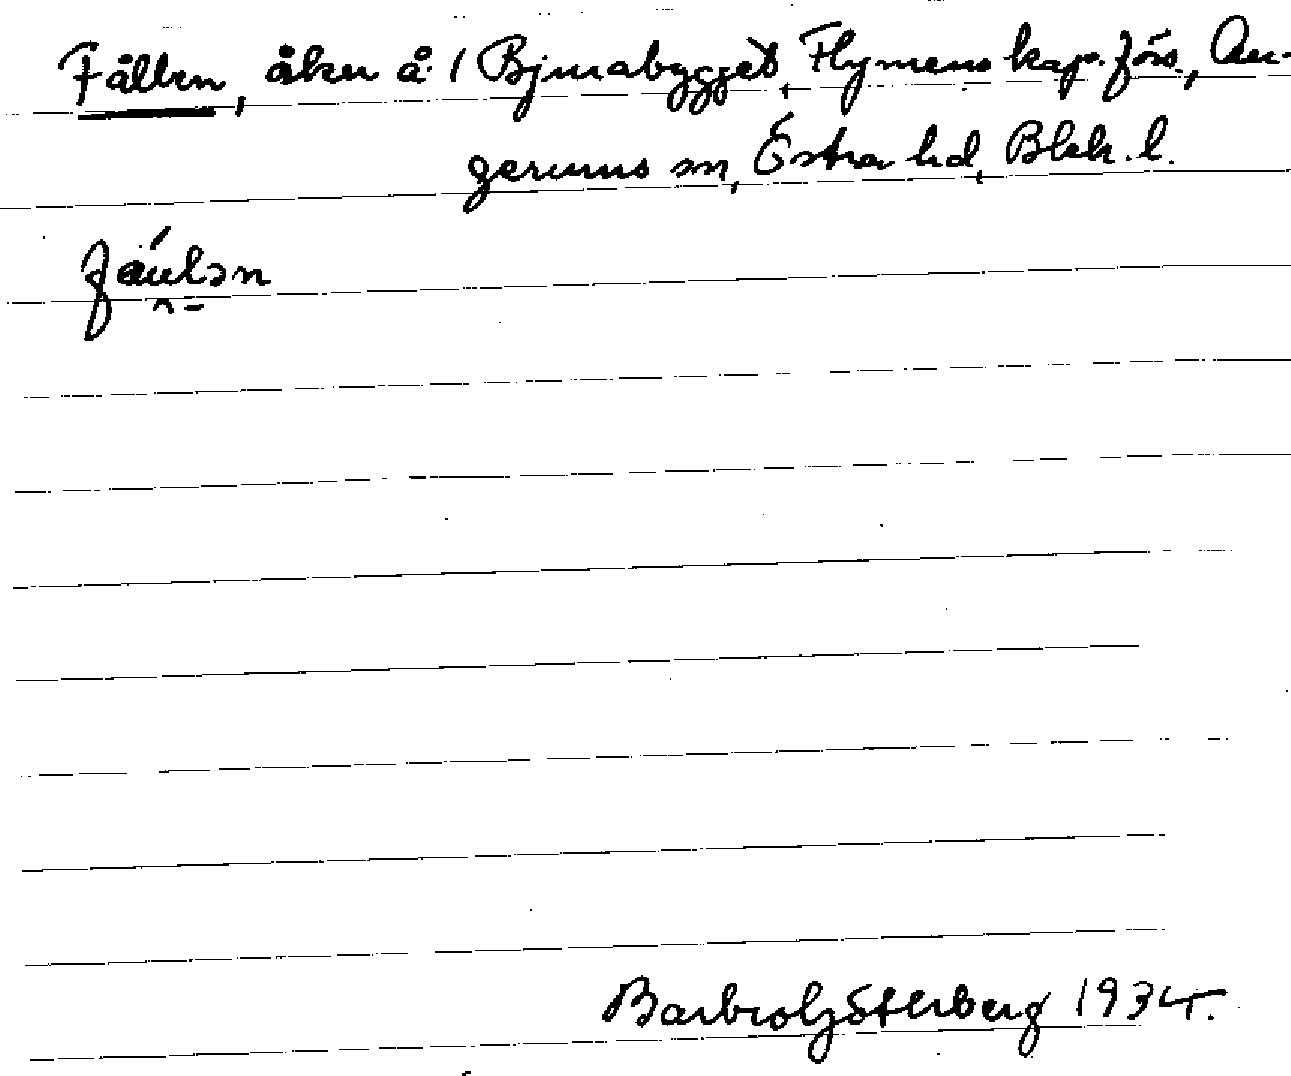 Fållen, åker å 1 Bjurabygget, Flymens kap. förs., Au-
gerums sn, Östra hd, Blek. l.
fáulən
Barbro Ljösterberg 1934.